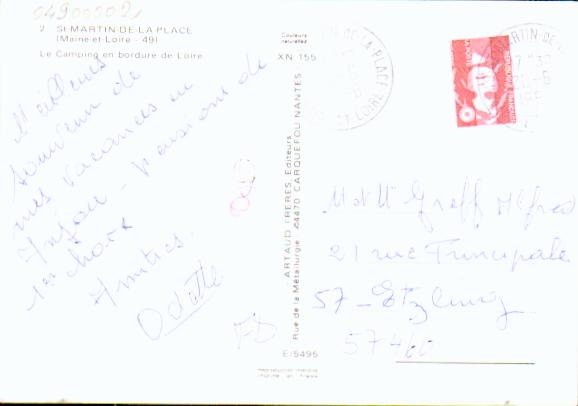 04900002
2 St MARTIN-DE-LA-PLACE
(Maine-et-Loire - 49)
Le Camping en bordure de Loire
Couleurs
naturelles
XN 155
Meilleurs
souvenirs de
mes vacances en
Anjou - Pensions de
1er choix
Amitiés.
Odette
ARTAUD FRERES, Editeurs
Rue de la Métallurgie 44470 CARQUEFOU NANTES
E/5495
Reproduction interdite
Imprimé en France
REPUBLIQUE FRANÇAISE
MARTIN-DE-L
DE-LA-PLACE
ET LOIRE
M et Mme Graff Alfred
21 rue Principale
57 - Etzling
57460